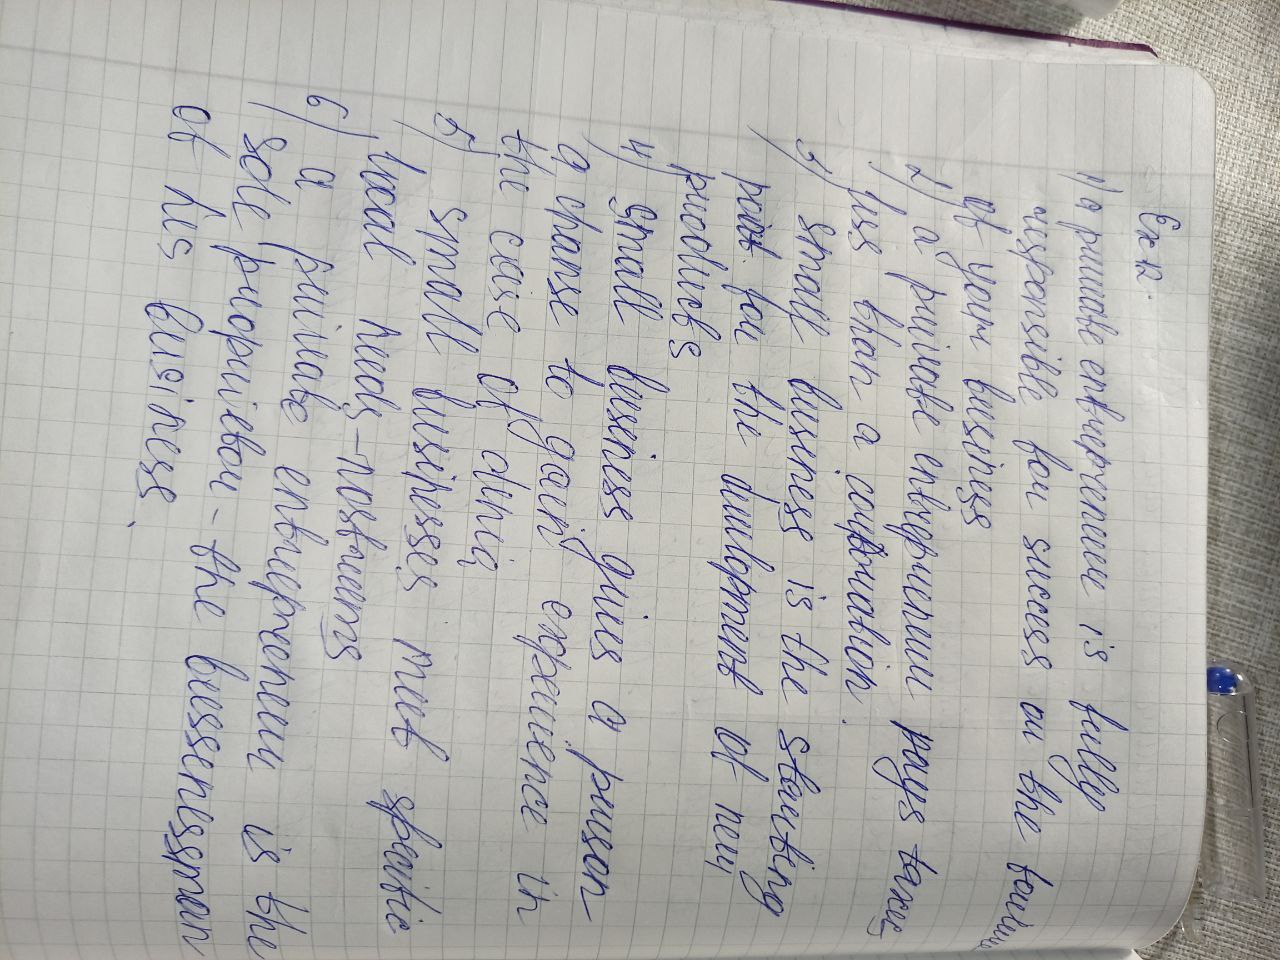 Ex 12.
1) a private entrepreneur is fully
responsible for succes or the failure
of your business
2) a private entrepreneur pays taxes
less than a corporation.
3) small business is the starting
point for the development of new
products
4) small business gives a person
a chanse to gain experience in
the case of
5) small businesses meet specific
local needs -
6) a private entrepreneur is the
sole proprietor - the bussenessman
of his business.